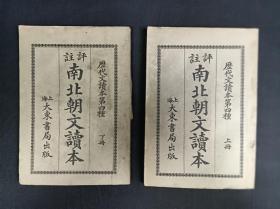 歷代文讀本第四種
上冊
評註
南北朝文讀本
上海
大東書局出版
歷代文讀本第四種
下冊
評註
南北朝文讀本
上海
大東書局出版